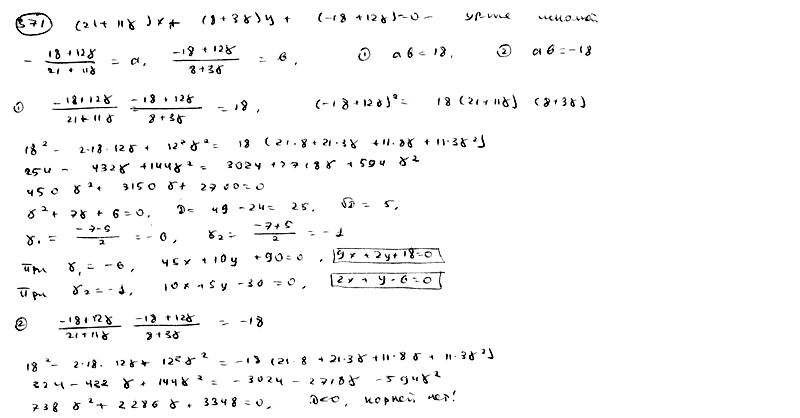 371 (21+11γ)x+ (8+3γ)y + (-18+12γ)=0 - ур-ие искомой
- (18+12γ)/(21+11γ) = a, (-18+12γ)/(8+3γ) = b, ① ab=18, ② ab=-18
① (-18+12γ)/(21+11γ) (-18+12γ)/(8+3γ) = 18, (-18+12γ)² = 18(21+11γ)(8+3γ)
18² - 2·18·12γ + 12²γ² = 18 (21·8+21·3γ+11·8γ+11·3γ²)
254 - 432γ+144γ² = 3024+2718γ+594γ²
450γ²+ 3150γ+ 2700=0
γ² + 7γ + 6=0, D= 49-24= 25, √D = 5,
γ₁ = (-7-5)/2 = -6, γ₂= (-7+5)/2 = -1
При γ₁ = -6, 45x+10y+90=0, 9x+2y+18=0
При γ₂=-1, 10x+5y-30=0, 2x+y-6=0
② (-18+12γ)/(21+11γ) (-18+12γ)/(8+3γ) = -18
18² - 2·18·12γ+ 12²γ² = -18 (21·8+21·3γ+11·8γ+11·3γ²)
324-422γ+144γ² = -3024-2718γ-594γ²
738γ²+2286γ+3348=0, D<0, корней нет!